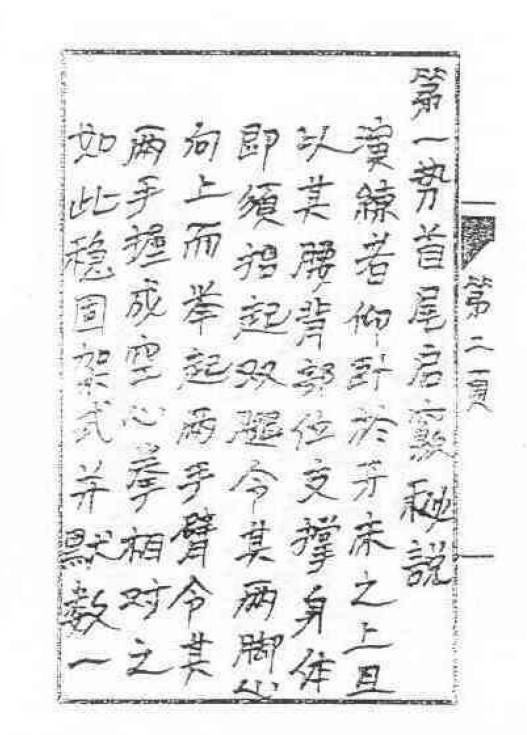 第一势首尾启窍秘说
演練者仰卧於牙床之上且
以其腰背部位支撑身体
即须招起双腿令其两脚心
向上而举起两手臂令其
两手握成空心拳相对之
如此稳固架式并默数一
第二頁